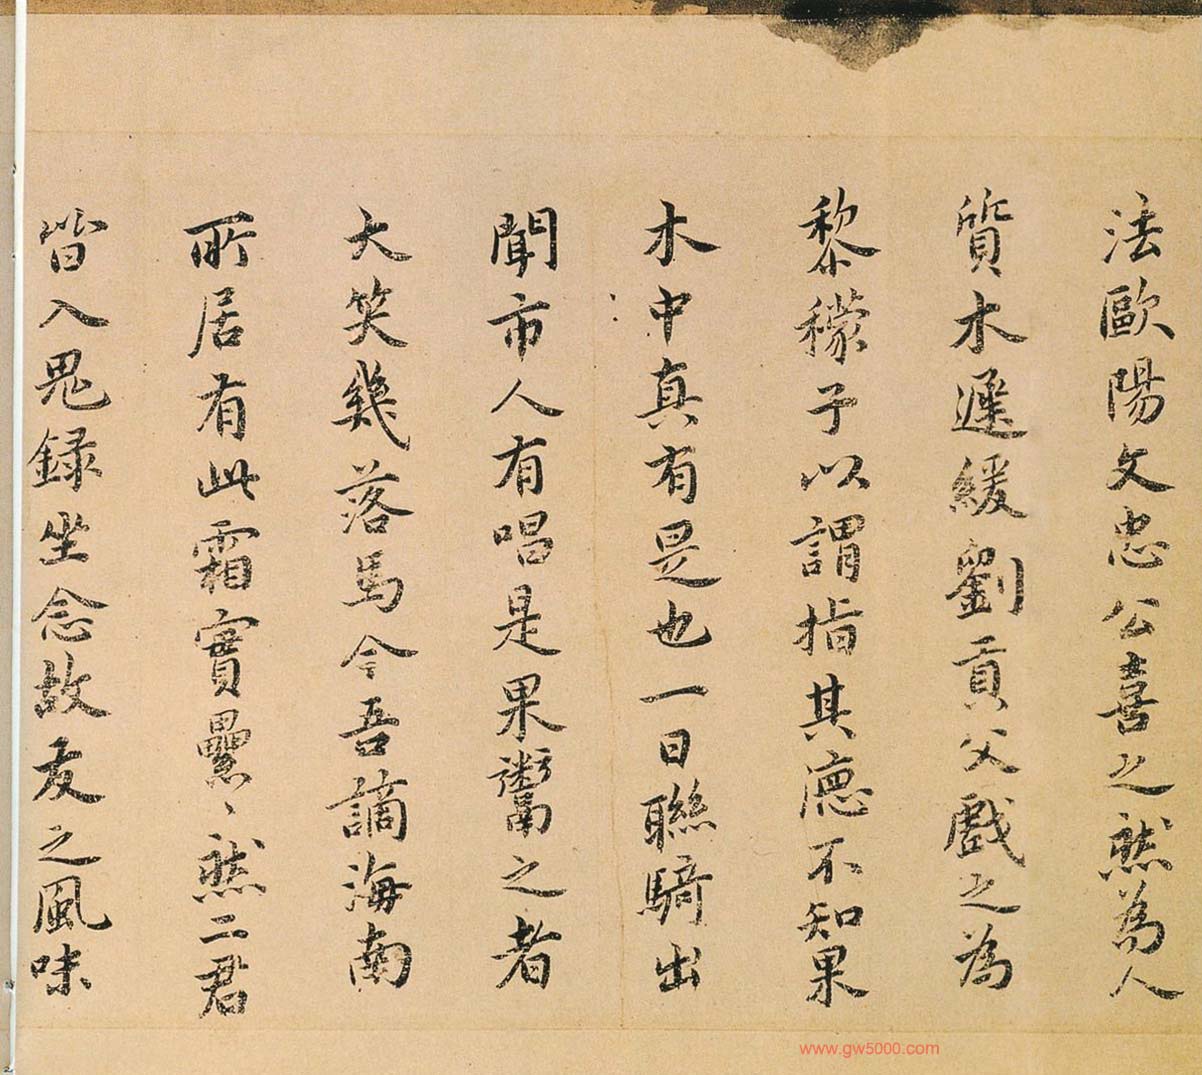 法歐陽文忠公喜之然為人
質木遲緩劉貢父戲之為
黎檬子以謂指其德不知果
木中真有是也一日聯騎出
聞市人有唱是果鬻之者
大笑幾落馬今吾謫海南
所居有此霜實纍〻然二君
皆入鬼錄坐念故友之風味
www.gw5000.com